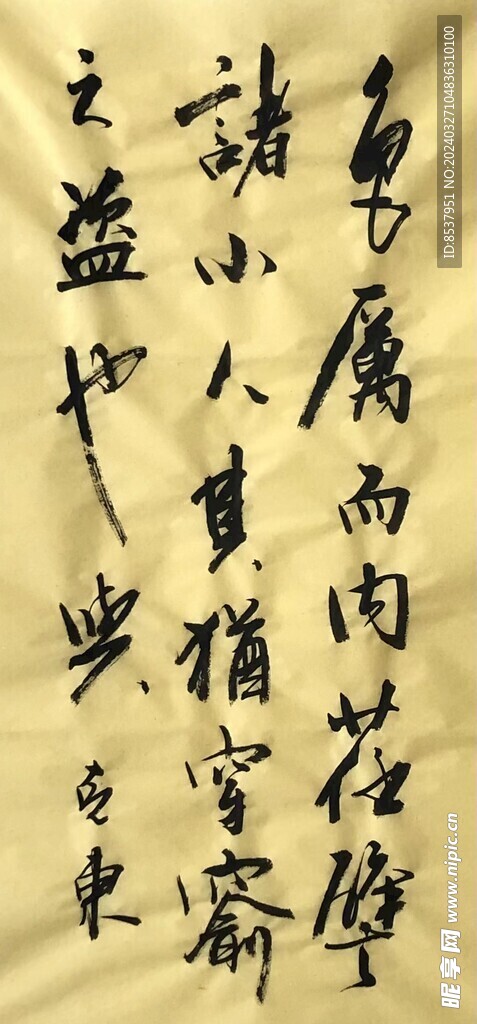 色厲而内荏譬
諸小人其猶穿窬
之盜也與 克東
ID:8537951 NO:20240327104836310100
昵享网 www.nipic.cn